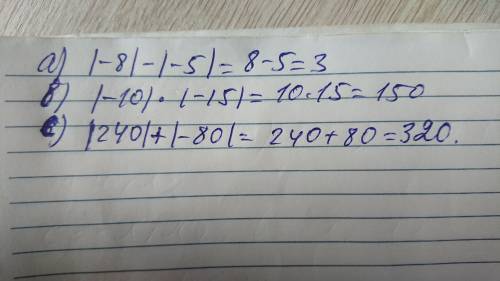 а) |-8|-|-5|= 8-5=3
б) |-10|·|-15|= 10·15=150
с) |240|+|-80|= 240+80=320.